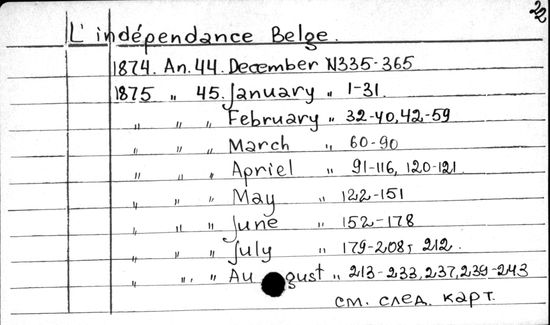 22
L'indépendance Belge.
1874. An. 44. December N335-365
1875 " 45. January " 1-31.
" " " February " 32-40,42-59
" " " March " 60-90
" " " Apriel " 91-116, 120-121
" " " May " 122-151
" " " June " 152-178
" " " July " 179-208, 212.
" " " August " 213-233,237,239-243
см. след. карт.